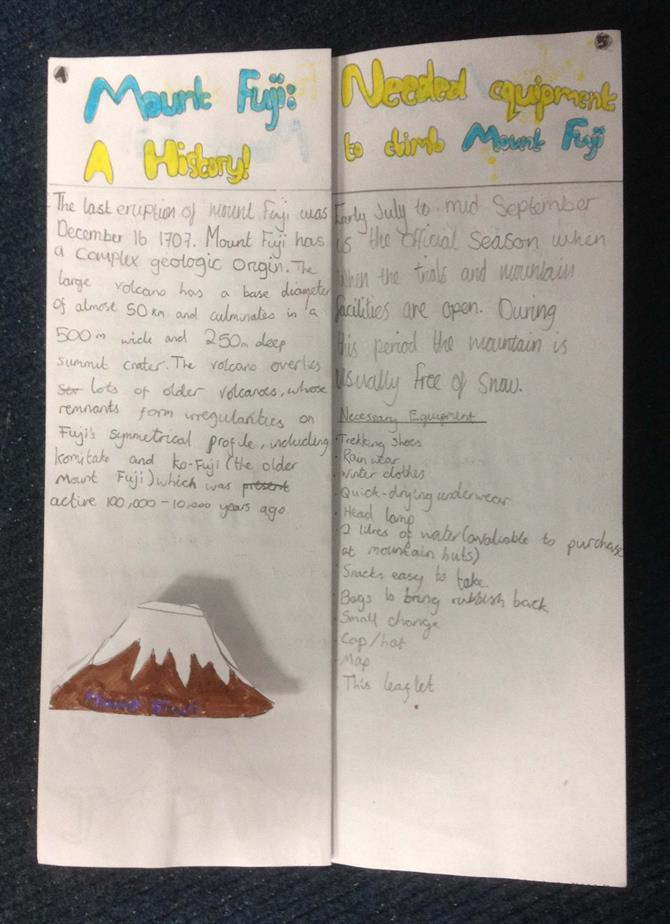 4
Mount Fuji:
A History!
The last eruption of mount Fuji was
December 16 1707. Mount Fuji has
a complex geologic origin. The
large volcano has a base diameter
of almost 50 km and culminates in a
500 m wide and 250 m deep
summit crater. The volcano overlies
lots of older volcanoes, whose
remnants form irregularities on
Fuji's symmetrical profile, including
komitake and ko-Fuji (the older
Mount Fuji) which was present
active 100,000 - 10,000 years ago.
Mount Fuji
5
Needed equipment
to climb Mount Fuji
Early July to mid September
is the official season when
when the trials and mountain
facilities are open. During
this period the mountain is
usually free of snow.
Necessary Equipment
· Trekking shoes
· Rain wear
· Winter clothes
· Quick-drying underwear
· Head lamp
· 2 litres of water (available to purchase
at mountain huts)
· Snacks easy to take
· Bags to bring rubbish back
· Small change
· Cap/hat
· Map
· This leaflet